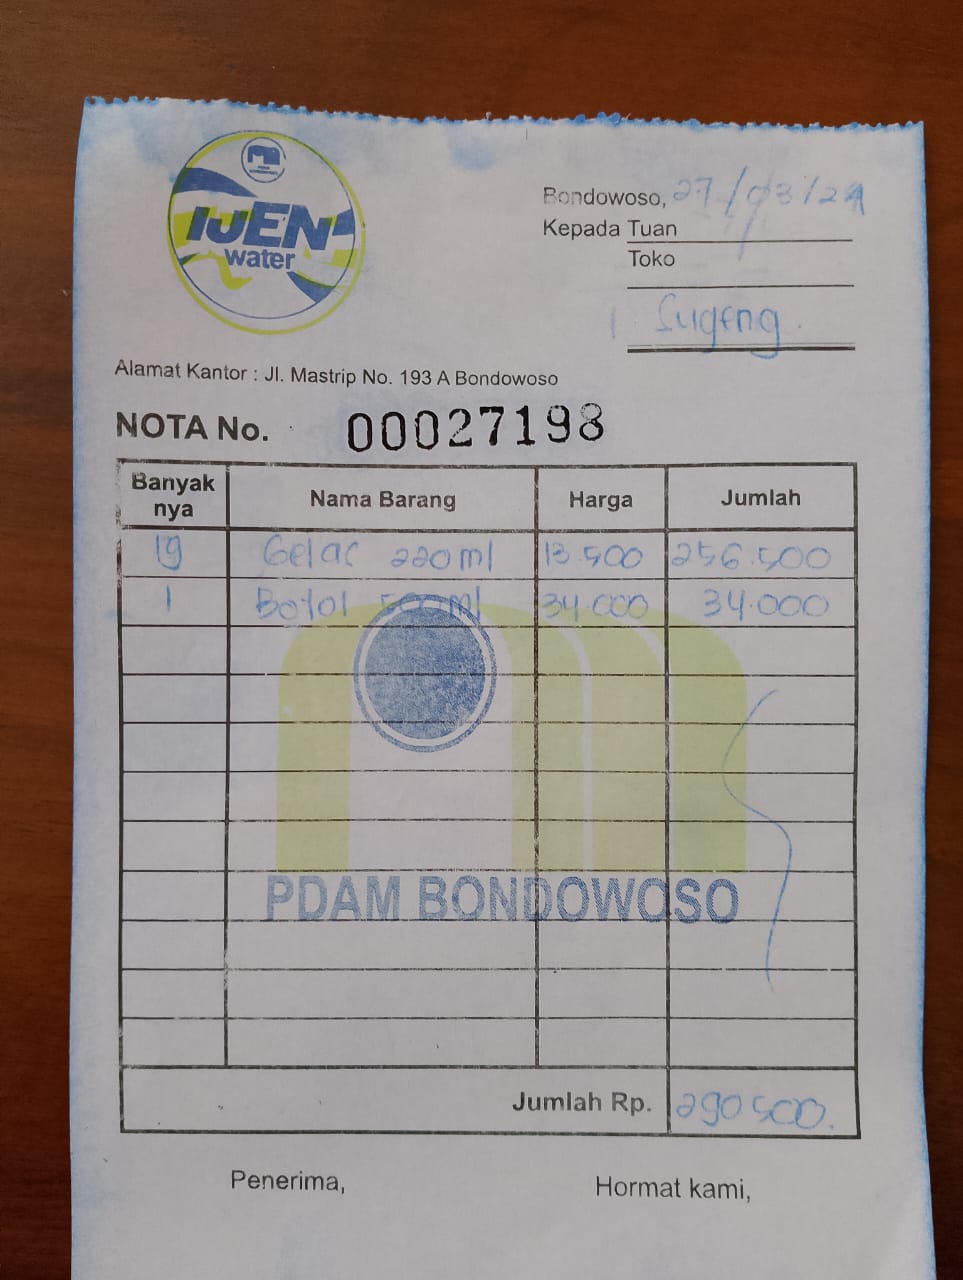 IJEN
water
Bondowoso, 27/03/24
Kepada Tuan
Toko
Sugeng
Alamat Kantor : Jl. Mastrip No. 193 A Bondowoso
NOTA No. 00027198
Banyak nya Nama Barang Harga Jumlah
19 Gelas 220ml 13.500 256.500
1 Botol 500ml 34.000 34.000
PDAM BONDOWOSO
Jumlah Rp. 290.500.
Penerima, Hormat kami,